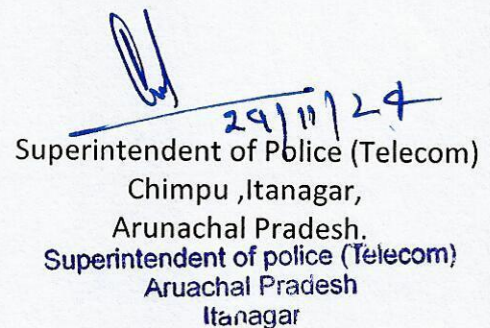 29/11/24
Superintendent of Police (Telecom)
Chimpu ,Itanagar,
Arunachal Pradesh.
Superintendent of police (Telecom)
Aruachal Pradesh
Itanagar